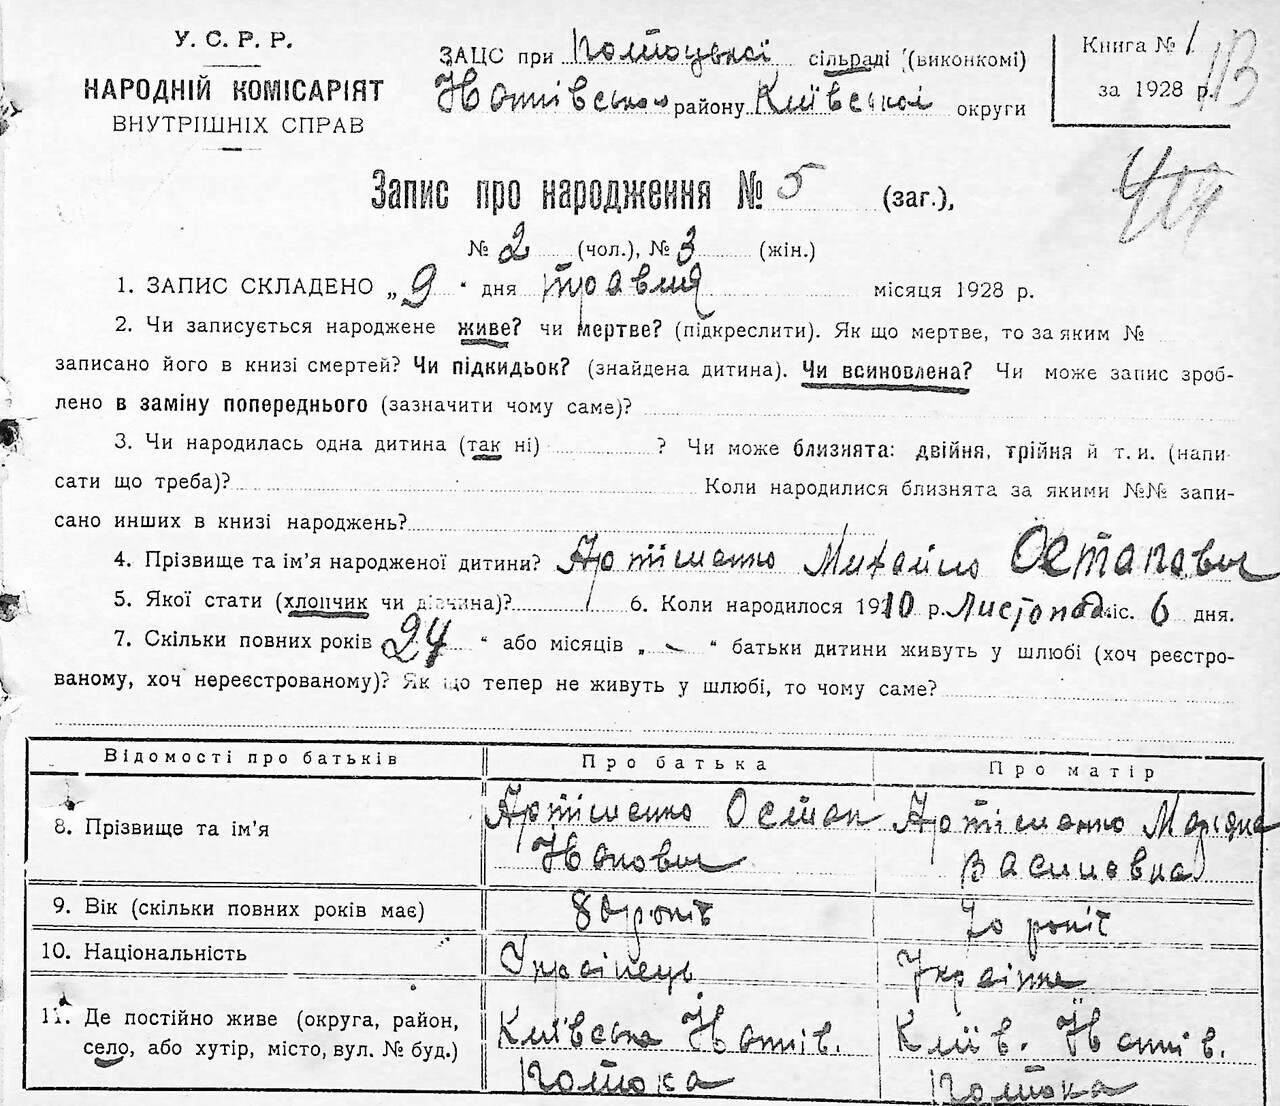 У. С. Р. Р.
НАРОДНІЙ КОМІСАРІЯТ
ВНУТРІШНІХ СПРАВ
ЗАЦС при сільраді (виконкомі)
району Київської округи
Книга № 1
за 1928 р.
Запис про народження № 5 (заг.),
№ 2 (чол.), № 3 (жін.)
1. ЗАПИС СКЛАДЕНО „9" дня травня місяця 1928 р.
2. Чи записується народжене живе? чи мертве? (підкреслити). Як що мертве, то за яким №
записано його в книзі смертей? Чи підкидьок? (знайдена дитина). Чи всиновлена? Чи може запис зроб-
лено в заміну попереднього (зазначити чому саме)?
3. Чи народилась одна дитина (так ні) ? Чи може близнята: двійня, трійня й т. и. (напи-
сати що треба)? Коли народилися близнята за якими №№ запи-
сано инших в книзі народжень?
4. Прізвище та ім'я народженої дитини? Артіменко Михайло Остапович
5. Якої стати (хлопчик чи дівчина)? 6. Коли народилося 1910 р. Листопад міс. 6 дня.
7. Скільки повних років 24 " або місяців „ - " батьки дитини живуть у шлюбі (хоч реєстро-
ваному, хоч нереєстрованому)? Як що тепер не живуть у шлюбі, то чому саме?
Відомості про батьків Про батька Про матір
8. Прізвище та ім'я Артіменко Остап Артіменко
Василовна
9. Вік (скільки повних років має) 80 років 70 років
10. Національність Українець Українка
11. Де постійно живе (округа, район, Київська Хотнів. Київ. Хотнів.
село, або хутір, місто, вул. № буд.)